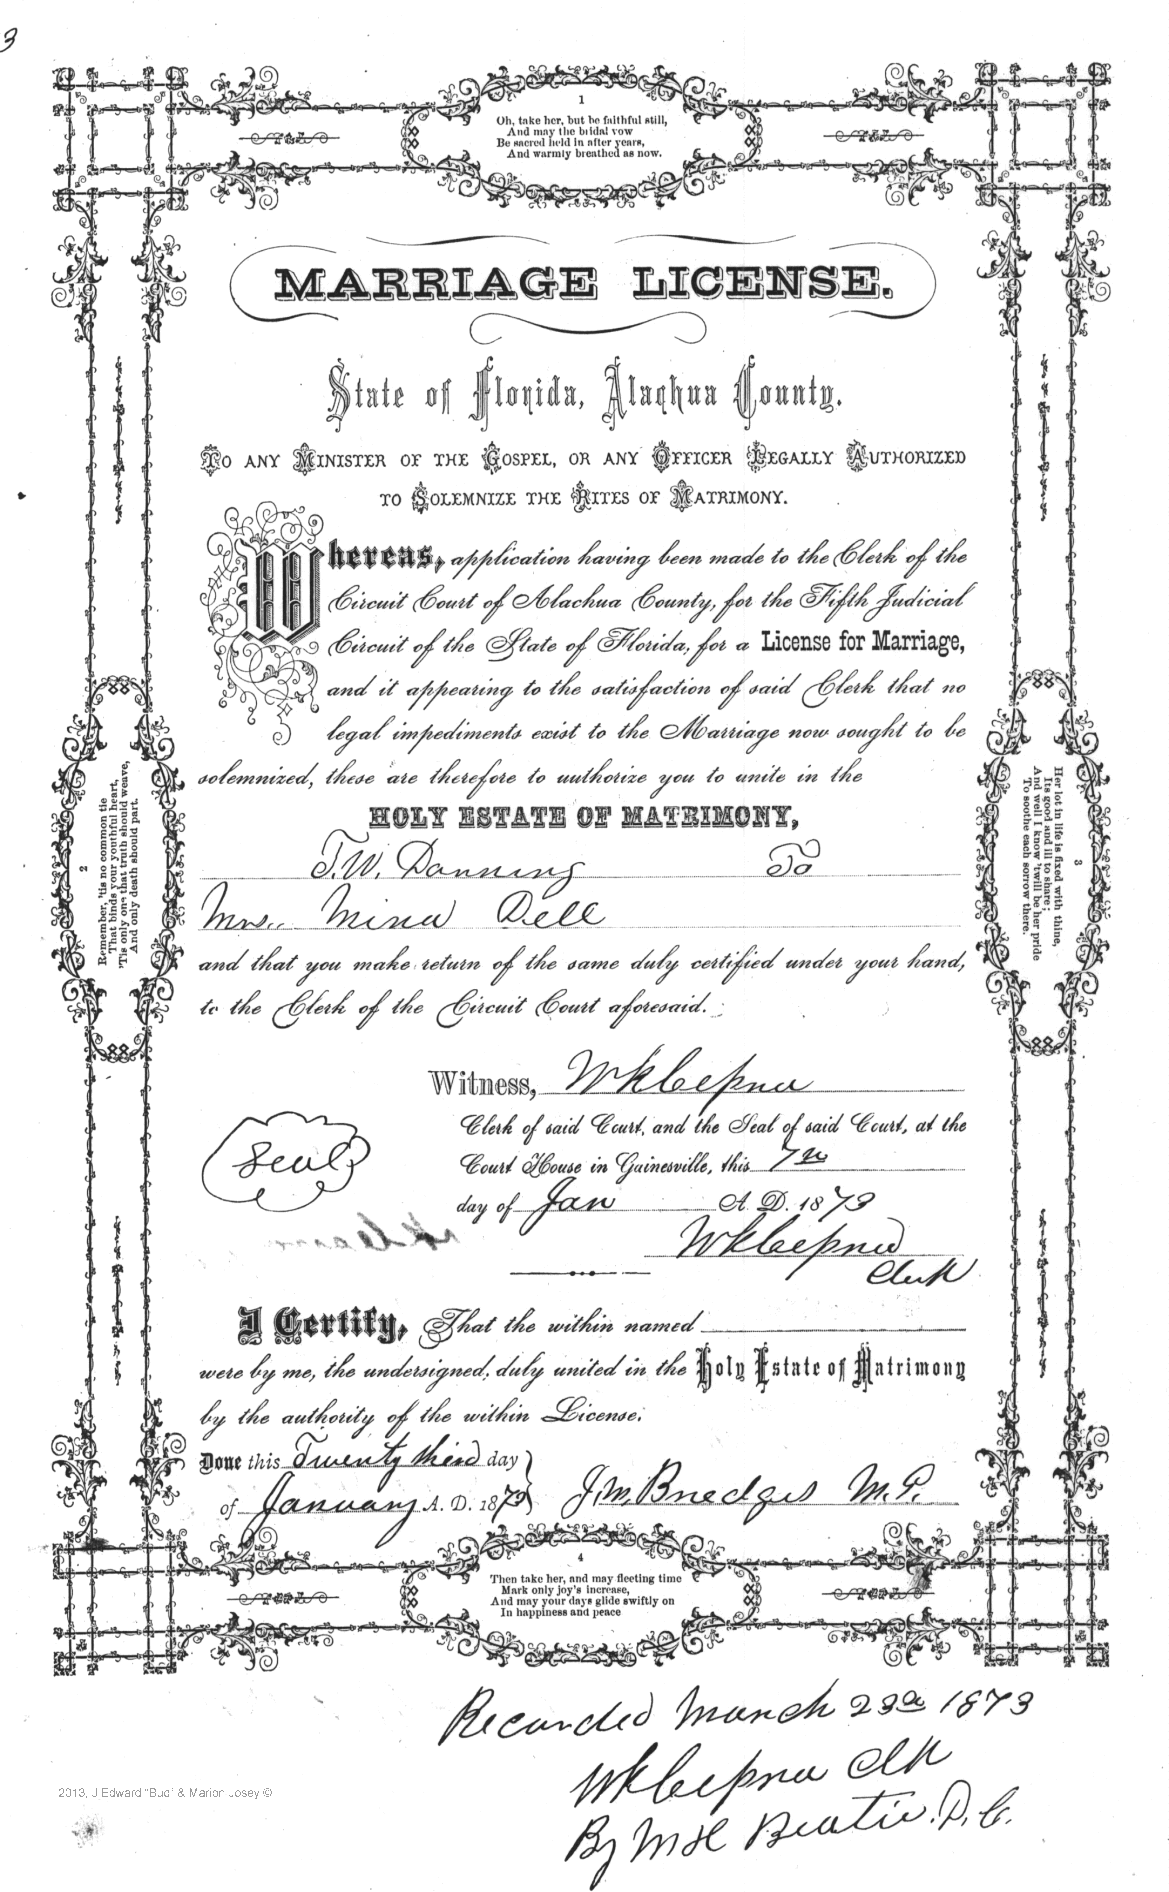 3
1
Oh, take her, but be faithful still,
And may the bridal vow
Be sacred held in after years,
And warmly breathed as now.
MARRIAGE LICENSE.
State of Florida, Alachua County.
TO ANY MINISTER OF THE GOSPEL, OR ANY OFFICER LEGALLY AUTHORIZED
TO SOLEMNIZE THE RITES OF MATRIMONY.
Whereas, application having been made to the Clerk of the
Circuit Court of Alachua County, for the Fifth Judicial
Circuit of the State of Florida, for a License for Marriage,
and it appearing to the satisfaction of said Clerk that no
legal impediments exist to the Marriage now sought to be
solemnized, these are therefore to authorize you to unite in the
HOLY ESTATE OF MATRIMONY,
T. W. Danning To
Mrs. Mina Dell
and that you make return of the same duly certified under your hand,
to the Clerk of the Circuit Court aforesaid.
2
Remember, 'tis no common tie
That binds your youthful heart,
'Tis only one that truth should weave,
And only death should part.
3
Her lot in life is fixed with thine,
Its good and ill to share;
And well I know 'twill be her pride
To soothe each sorrow there.
Witness, W K Cessna
Clerk of said Court, and the Seal of said Court, at the
Court House in Gainesville, this 7th
day of Jan A. D. 1873
Seal
W K Cessna
Clerk
I Certify, That the within named
were by me, the undersigned, duly united in the Holy Estate of Matrimony
by the authority of the within License.
Done this Twenty third day
of January A. D. 1873 J. M. Bridges M. G.
4
Then take her, and may fleeting time
Mark only joy's increase,
And may your days glide swiftly on
In happiness and peace
Recorded March 23d 1873
W K Cessna Clk
By M H Beatie. D. C.
2013, J Edward "Bud" & Marion Josey ©